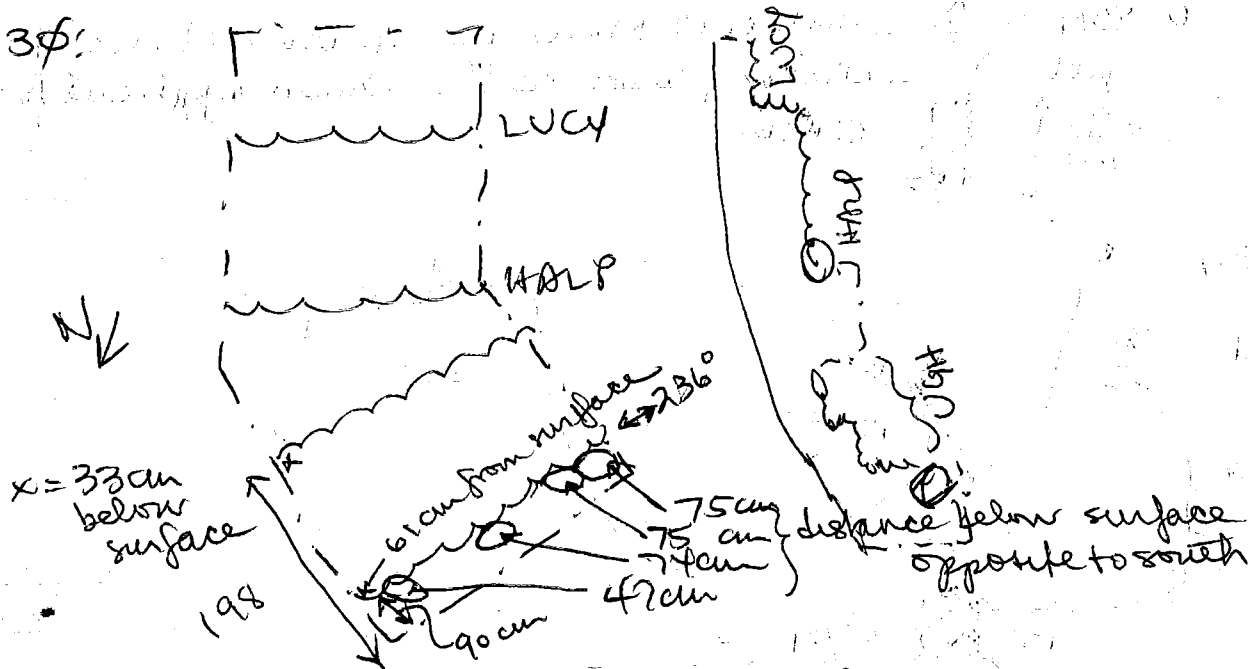 30:
LUCY
HALP
N
x = 33 cm
below
surface
198
61 cm from surface
236°
75 cm
75 cm
74 cm
47 cm
90 cm
distance below surface
opposite to south
LUCY
HALP
UGH